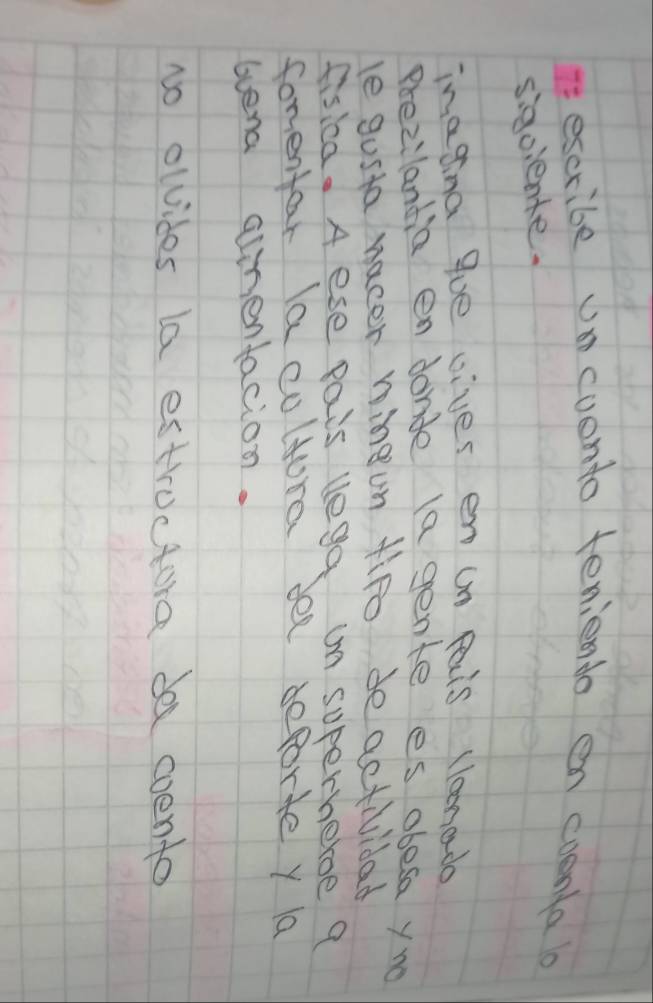 7: escribe un cuento teniendo en cuenta lo
siguiente.
imagina que vives en un país llamado
Prezilandia en donde la gente es obesa y no
le gusta hacer ningun tipo de actividad
física. A ese país llega un superheroe a
fomentar la cultura del deporte y la
buena alimentacion.
no olvides la estructura del cuento